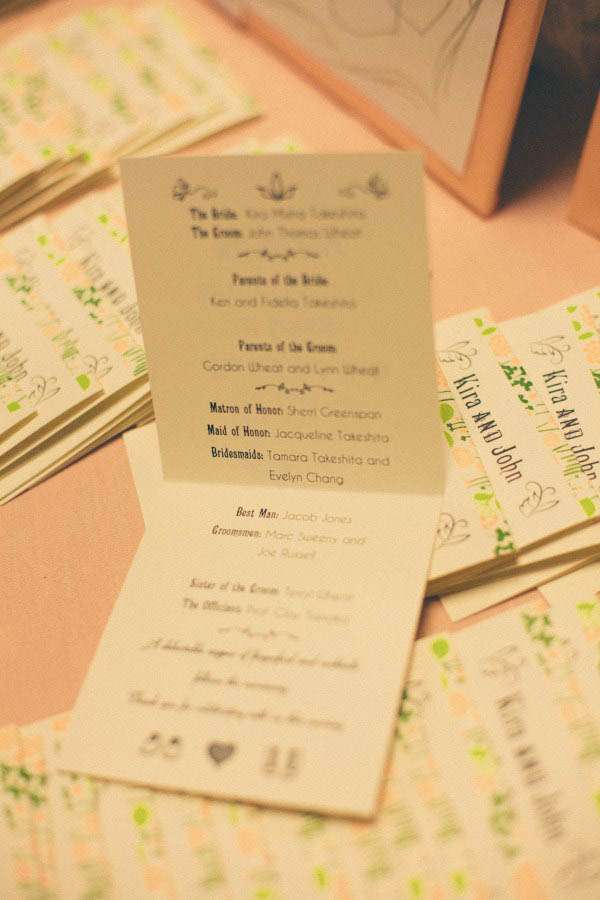 The Bride: Kira Maria Takeshita
The Groom: John Thomas Wheat
Parents of the Bride:
Ken and Fidelia Takeshita
Parents of the Groom:
Gordon Wheat and Lynn Wheat
Matron of Honor: Sherri Greenspan
Maid of Honor: Jacqueline Takeshita
Bridesmaids: Tamara Takeshita and
Evelyn Chang
Best Man: Jacob Jones
Groomsmen: Marc Sweeny and
Joe Russell
Sister of the Groom: Wheat
The Officiant: Prof.
follow the ceremony
Thank you for celebrating with us this evening
Kira AND John
Kira AND John
Kira AND John
Kira AND John
Kira AND John